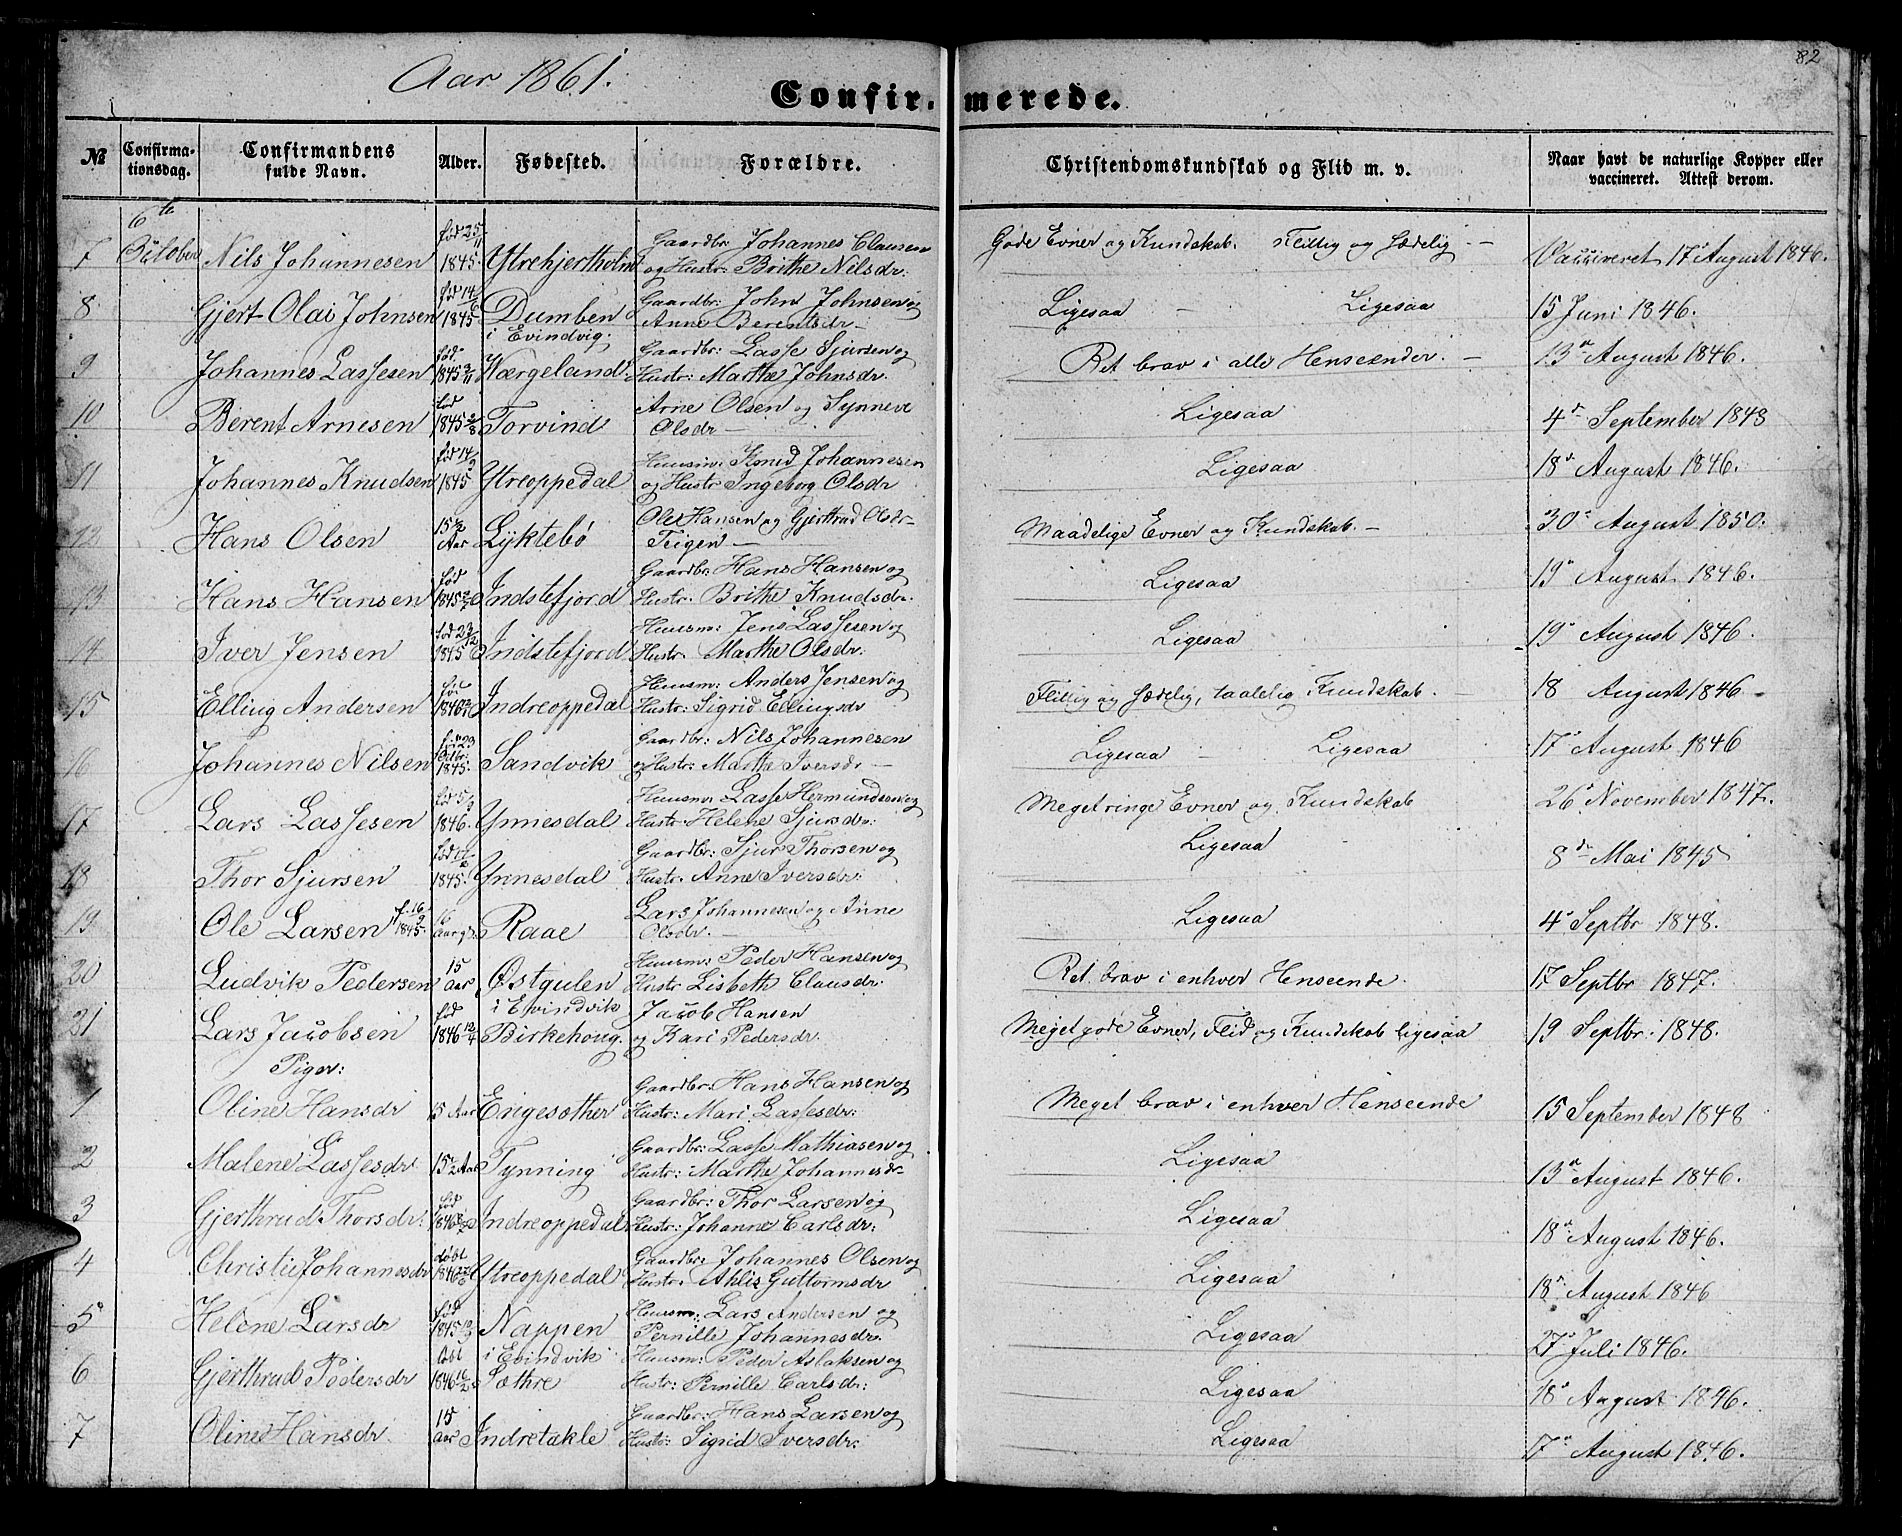 82
Aar 1861.
Confirmerede.
No Confirmationsdag. Confirmandens fulde Navn. Alder. Fødested. Forældre. Christendomskundskab og Flid m. v. Naar havt de naturlige Kopper eller vaccineret. Attest derom.
6te
7 October Nils Johannesen fød 25/11 1845. Ytrehjertholm Gaardbr: Johannes Clausen og Hustr: Brithe Nilsdr: Gode Evner og Kundskab. Flittig og sædelig - Vaccineret 17de August 1846.
8 Gjert Olai Johnsen fød 14/6 1845 Dumben i Evindvig. Gaardbr: John Johnsen og Anne Berentsdr - Ligesaa - Ligesaa 15 Juni 1846.
9 Johannes Lassesen fød. 1845 2/11 Værgeland Gaardbr: Lasse Sjursen og Hustr: Marthe Johnsdr. Ret brav i alle Henseender. - 13de August 1846.
10 Berent Arnesen fød 1845 2/8 Torvind Arne Olsen og Synneve Olsdr - Ligesaa 4de September 1848
11 Johannes Knudsen fød 14/9 1845 Ytreoppedal Huusm: Knud Johannesen og Hustr Ingeborg Olsdr Ligesaa 18de August 1846.
12 Hans Olsen 15 1/2 Aar Lyktebø Ole Hansen og Gjertrud Olsdr - Teigen - Maadelige Evner og Kundskab. - 30te August 1850.
13 Hans Hansen fød 1845 Indstefjord Gaardbr: Hans Hansen og Hustr. Brithe Knudsdr. Ligesaa 19de August 1846.
14 Iver Jensen fød 23/12 1845 Indstefjord Huusm: Jens Lassesen og Hustr. Marthe Olsdr: Ligesaa 19de August 1846.
15 Elling Andersen fød 1846 Indreoppedal Huusm: Anders Jensen og Hustr: Sigrid Ellingsdr Flittig og sædelig, taalelig Kundskab. - 18 August 1846
16 Johannes Nilsen 23 Octbr. 1845. Sandvik Gaardbr: Nils Johannesen og Hustr: Marthe Iversdr - Ligesaa - Ligesaa 17de August 1846
17 Lars Lassesen fød 5/3 1846. Ynnesdal Huusm: Lasse Hermundsen og Hustr: Helene Sjursdr: Meget ringe Evner og Kundskab 26de November 1847.
18 Thor Sjursen fød 1845. Ynnesdal Gaardbr: Sjur Thorsen og Hustr. Anne Iversdr: Ligesaa 8de Mai 1845
19 Ole Larsen f. 16/9 1845. 16 Aar Raae Lars Johannesen og Anne Olsdr. - Ligesaa 4de Septbr 1848.
20 Ludvik Pedersen 15 Aar Østgulen i Evindvik Huusm: Peder Hansen og Hustr Lisbeth Clausdr: Ret brav i enhver Henseende. 17 Septbr 1847.
21 Lars Jacobsen fød 1846 12/4 Birkehoug. Jacob Hansen og Kari Pedersdr. Meget gode Evner, Flid og Kundskab ligesaa 19 Septbr: 1848.
Piger:
1 Oline Hansdr 15 Aar Engesæther Gaardbr: Hans Hansen og Hustr: Mari Lassesdr: Meget brav i enhver Henseende 15 September 1848
2 Malene Lassesdr 15 1/2 Aar Tynning Gaardbr: Lasse Mathiasen og Hustr: Marthe Johannesdr Ligesaa 13de August 1846.
3 Gjerthrud Thorsdr. fød 1846 Indreoppedal Gaardbr: Thor Larsen og Hustr: Johanne Carlsdr: Ligesaa 18de August 1846.
4 Christie Johannesdr døbt 1846 Ytreoppedal Gaardbr: Johannes Olsen og Hustr. Ahlis Guttormsdr Ligesaa 18de August 1846
5 Helene Larsdr fød 1845 Nappen i Evindvik Huusm: Lars Andersen og Pernille Johannesdr. Ligesaa 27de Juli 1846.
6 Gjerthrud Pedersdr døbt 1846 Sæthre Huusm: Peder Aslaksen og Hustr: Pernille Carlsdr: Ligesaa 18de August 1846.
7 Oline Hansdr. 15 Aar Indretakle Gaardbr: Hans Larsen og Hustr: Sigrid Iversdr: Ligesaa 17de August 1846.